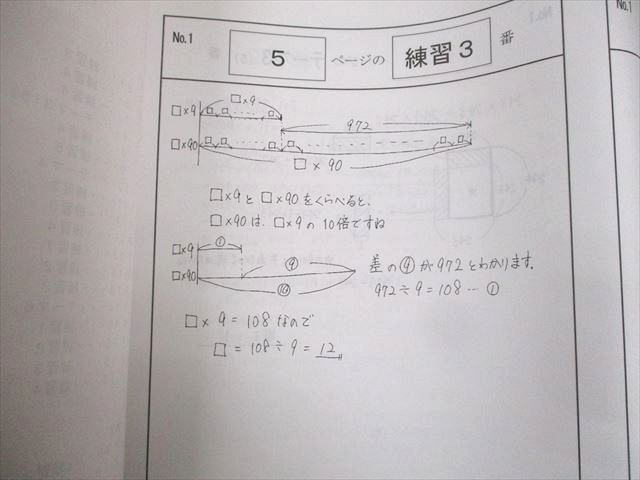 No.1
5 ページの 練習3 番
□×9
□×9
972
□×90
□ × 90
□×9と □×90をくらべると、
□×90は、□×9の 10倍ですね
□×9
①
□×90
⑨
⑩
差の⑨が972とわかります。
972÷9=108… ①
□× 9 = 108 なので
□ = 108÷9 = 12
No.1